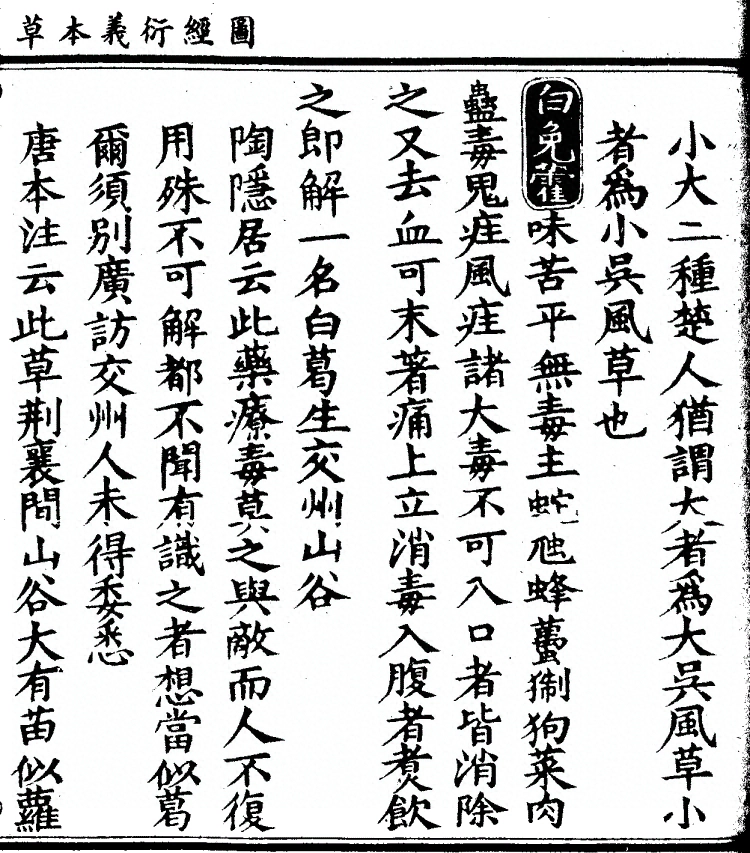 圖經衍義本草
小大二種楚人猶謂大者爲大吳風草小
者爲小吳風草也
白兔藿味苦平無毒主蛇虺蜂蠆猘狗菜肉
蠱毒鬼疰風疰諸大毒不可入口者皆消除
之又去血可末著痛上立消毒入腹者煑飲
之即解一名白葛生交州山谷
陶隱居云此藥療毒莫之與敵而人不復
用殊不可解都不聞有識之者想當似葛
爾須別廣訪交州人未得委悉
唐本注云此草荆襄間山谷大有苗似蘿